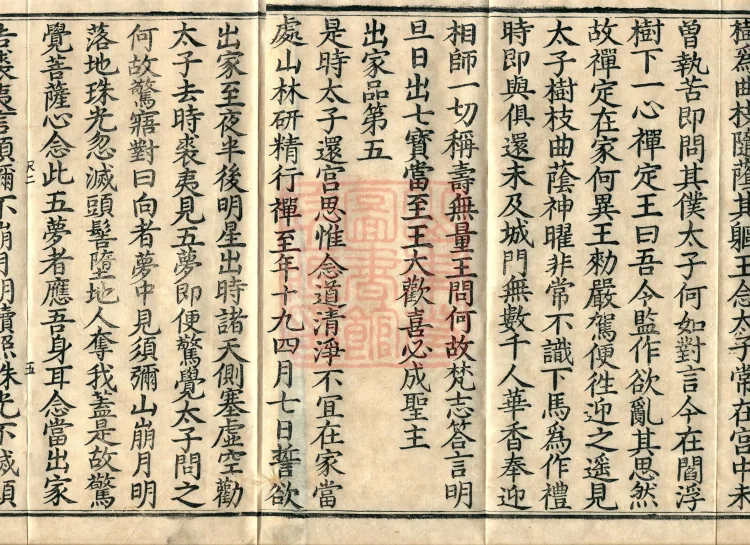 樹為曲枝隨蔭其軀王念太子常在宮中未
曾執苦即問其僕太子何如對言今在閻浮
樹下一心禪定王曰吾今監作欲亂其思然
故禪定在家何異王勑嚴駕便徃迎之遥見
太子樹枝曲蔭神曜非常不識下馬為作禮
時即與俱還未及城門無數千人華香奉迎
相師一切稱壽無量王問何故梵志答言明
旦日出七寶當至王大歡喜必成聖主
出家品第五
是時太子還宮思惟念道清淨不冝在家當
處山林研精行禪至年十九四月七日誓欲
出家至夜半後明星出時諸天側塞虛空勸
太子去時裘夷見五夢即便驚覺太子問之
何故驚寤對曰向者夢中見須彌山崩月明
落地珠光忽滅頭髻墮地人奪我蓋是故驚
覺菩薩心念此五夢者應吾身耳念當出家
五
告裘夷言須彌不崩月明續照珠光不滅頭